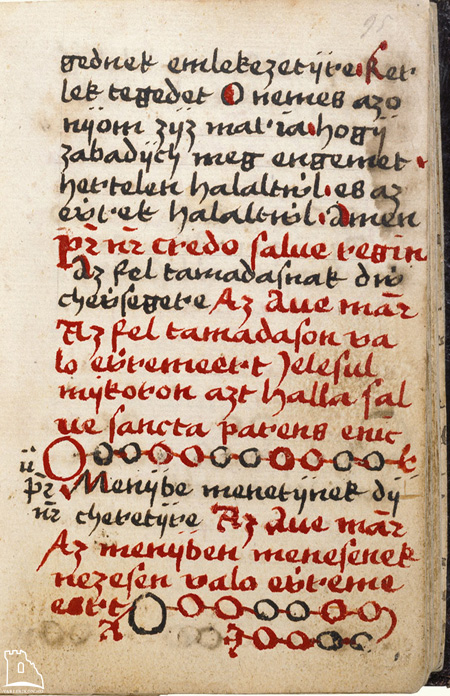 95
gednek emlekezetijre. Ker
lek tegedet O nemes azo
nijom zijz maria. hogij
zabadijcij meg engemet.
hertelen halaltwl. es az
ewrek halaltwl. Amen
pr nr credo salue regin
Az fel tamadasnak diw
chewsegere Az Aue mar
Az fel tamadason va
lo ewremeert Jelesul
mijkoron azt halla sal
ue sancta parens enic
Menijbe menetijnek dij
pr nr cheretijre Az Aue mar
Az menijben menesenek
nezesen valo ewreme
eert